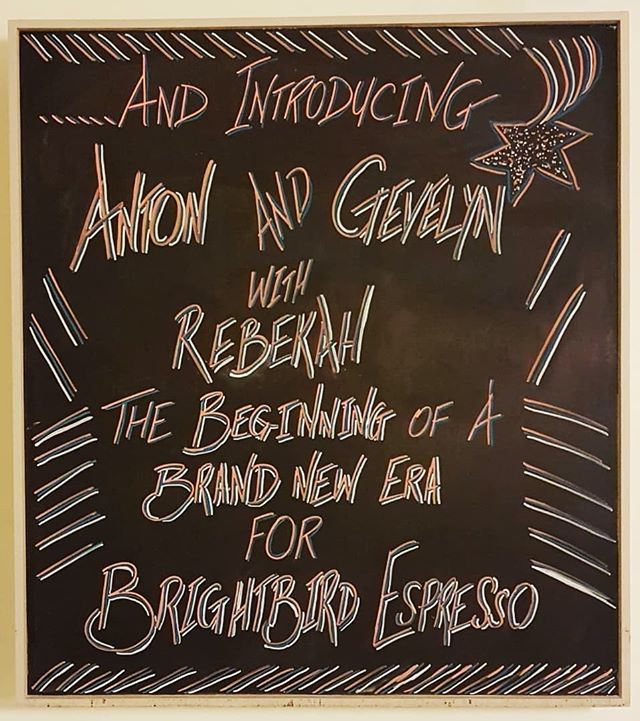 ......And Introducing
Anton and Gevelyn
with
Rebekah
The Beginning of A
Brand New Era
for
Brightbird Espresso